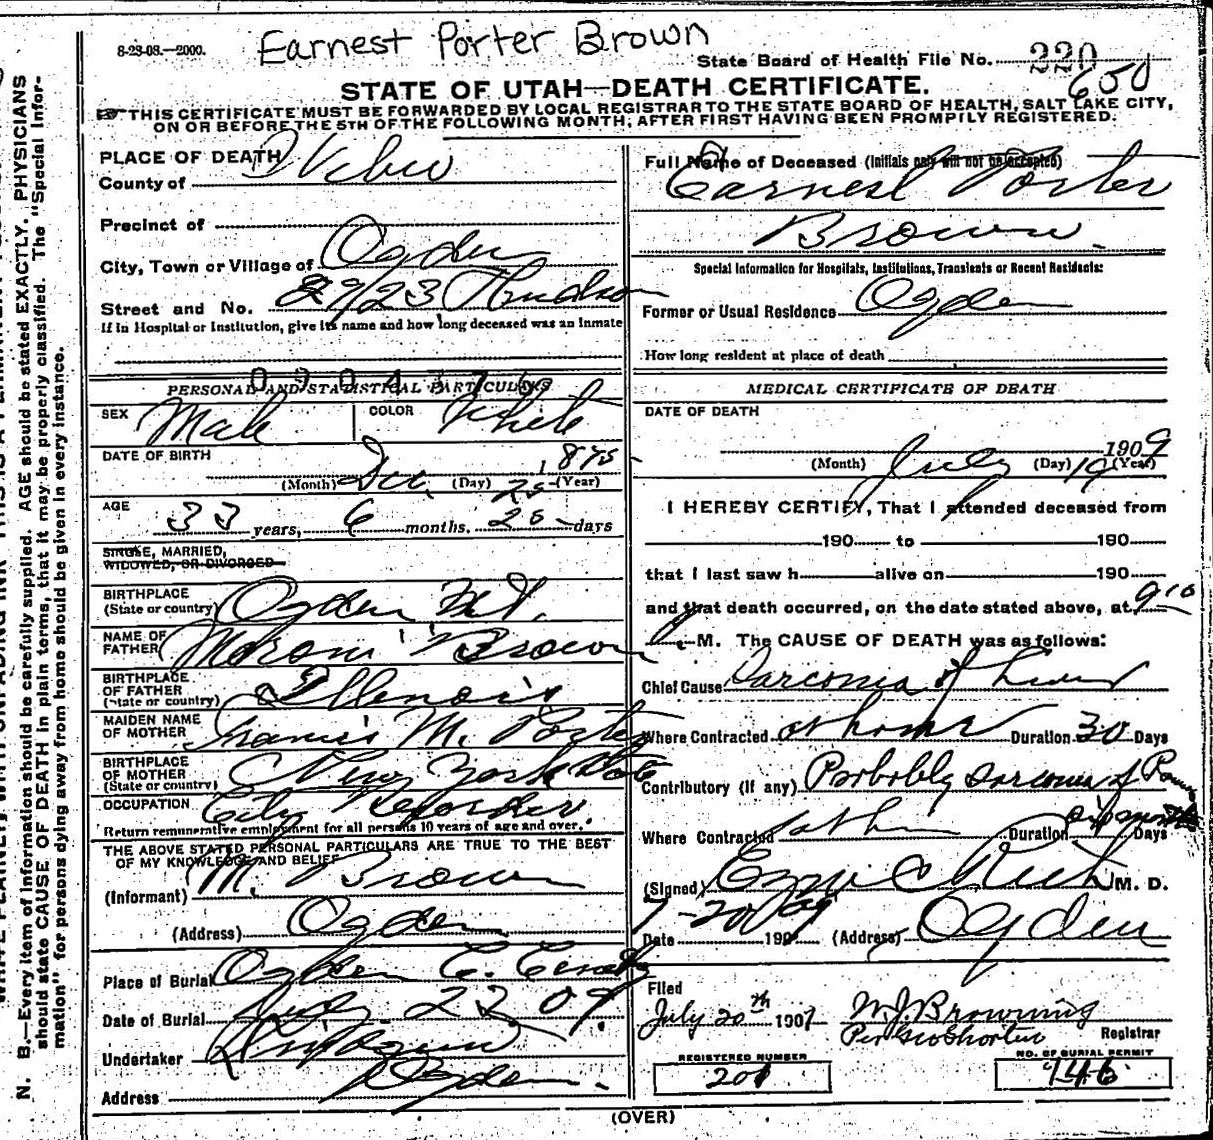 8-23-08.—2000.
Earnest Porter Brown
State Board of Health File No. 220
650
STATE OF UTAH—DEATH CERTIFICATE.
THIS CERTIFICATE MUST BE FORWARDED BY LOCAL REGISTRAR TO THE STATE BOARD OF HEALTH, SALT LAKE CITY,
ON OR BEFORE THE 5TH OF THE FOLLOWING MONTH, AFTER FIRST HAVING BEEN PROMPTLY REGISTERED.
N. B.—Every item of information should be carefully supplied. AGE should be stated EXACTLY. PHYSICIANS
should state CAUSE OF DEATH in plain terms, that it may be properly classified. The "Special Infor-
mation" for persons dying away from home should be given in every instance.
PLACE OF DEATH
County of Weber
Precinct of
City, Town or Village of Ogden
Street and No. 2923 Hudson
If in Hospital or Institution, give its name and how long deceased was an Inmate
PERSONAL AND STATISTICAL PARTICULARS
SEX Male COLOR White
DATE OF BIRTH
(Month) Dec. (Day) 25 (Year) 1875
AGE 33 years, 6 months, 25 days
SINGLE, MARRIED,
WIDOWED, OR DIVORCED
BIRTHPLACE
(State or country) Ogden Ut.
NAME OF
FATHER Moroni Brown
BIRTHPLACE
OF FATHER
(State or country) Illinois
MAIDEN NAME
OF MOTHER Francis M. Porter
BIRTHPLACE
OF MOTHER
(State or country) New York State
OCCUPATION City Recorder.
Return remunerative employment for all persons 10 years of age and over.
THE ABOVE STATED PERSONAL PARTICULARS ARE TRUE TO THE BEST
OF MY KNOWLEDGE AND BELIEF
(Informant) M. Brown
(Address) Ogden
Place of Burial Ogden C. Cemetry
Date of Burial July 22 09.
Undertaker
Address Ogden.
Full Name of Deceased (Initials only will not be accepted)
Earnest Porter
Brown.
Special Information for Hospitals, Institutions, Transients or Recent Residents:
Former or Usual Residence Ogden
How long resident at place of death
MEDICAL CERTIFICATE OF DEATH
DATE OF DEATH
1909
(Month) July (Day) 19 (Year)
I HEREBY CERTIFY, That I attended deceased from
190 to 190
that I last saw h alive on 190
and that death occurred, on the date stated above, at 9 10
M. The CAUSE OF DEATH was as follows:
Chief Cause Sarcoma of Liver
Where Contracted at home Duration 30 Days
Contributory (If any) Probobly sarcoma of
Where Contracted at home Duration Days
(Signed) Rich M. D.
7-20 1909 (Address) Ogden
Date
Filed
July 20th 1909 W.J. Browning
Per Geo Shorten Registrar
REGISTERED NUMBER
201
NO. OF BURIAL PERMIT
146
(OVER)